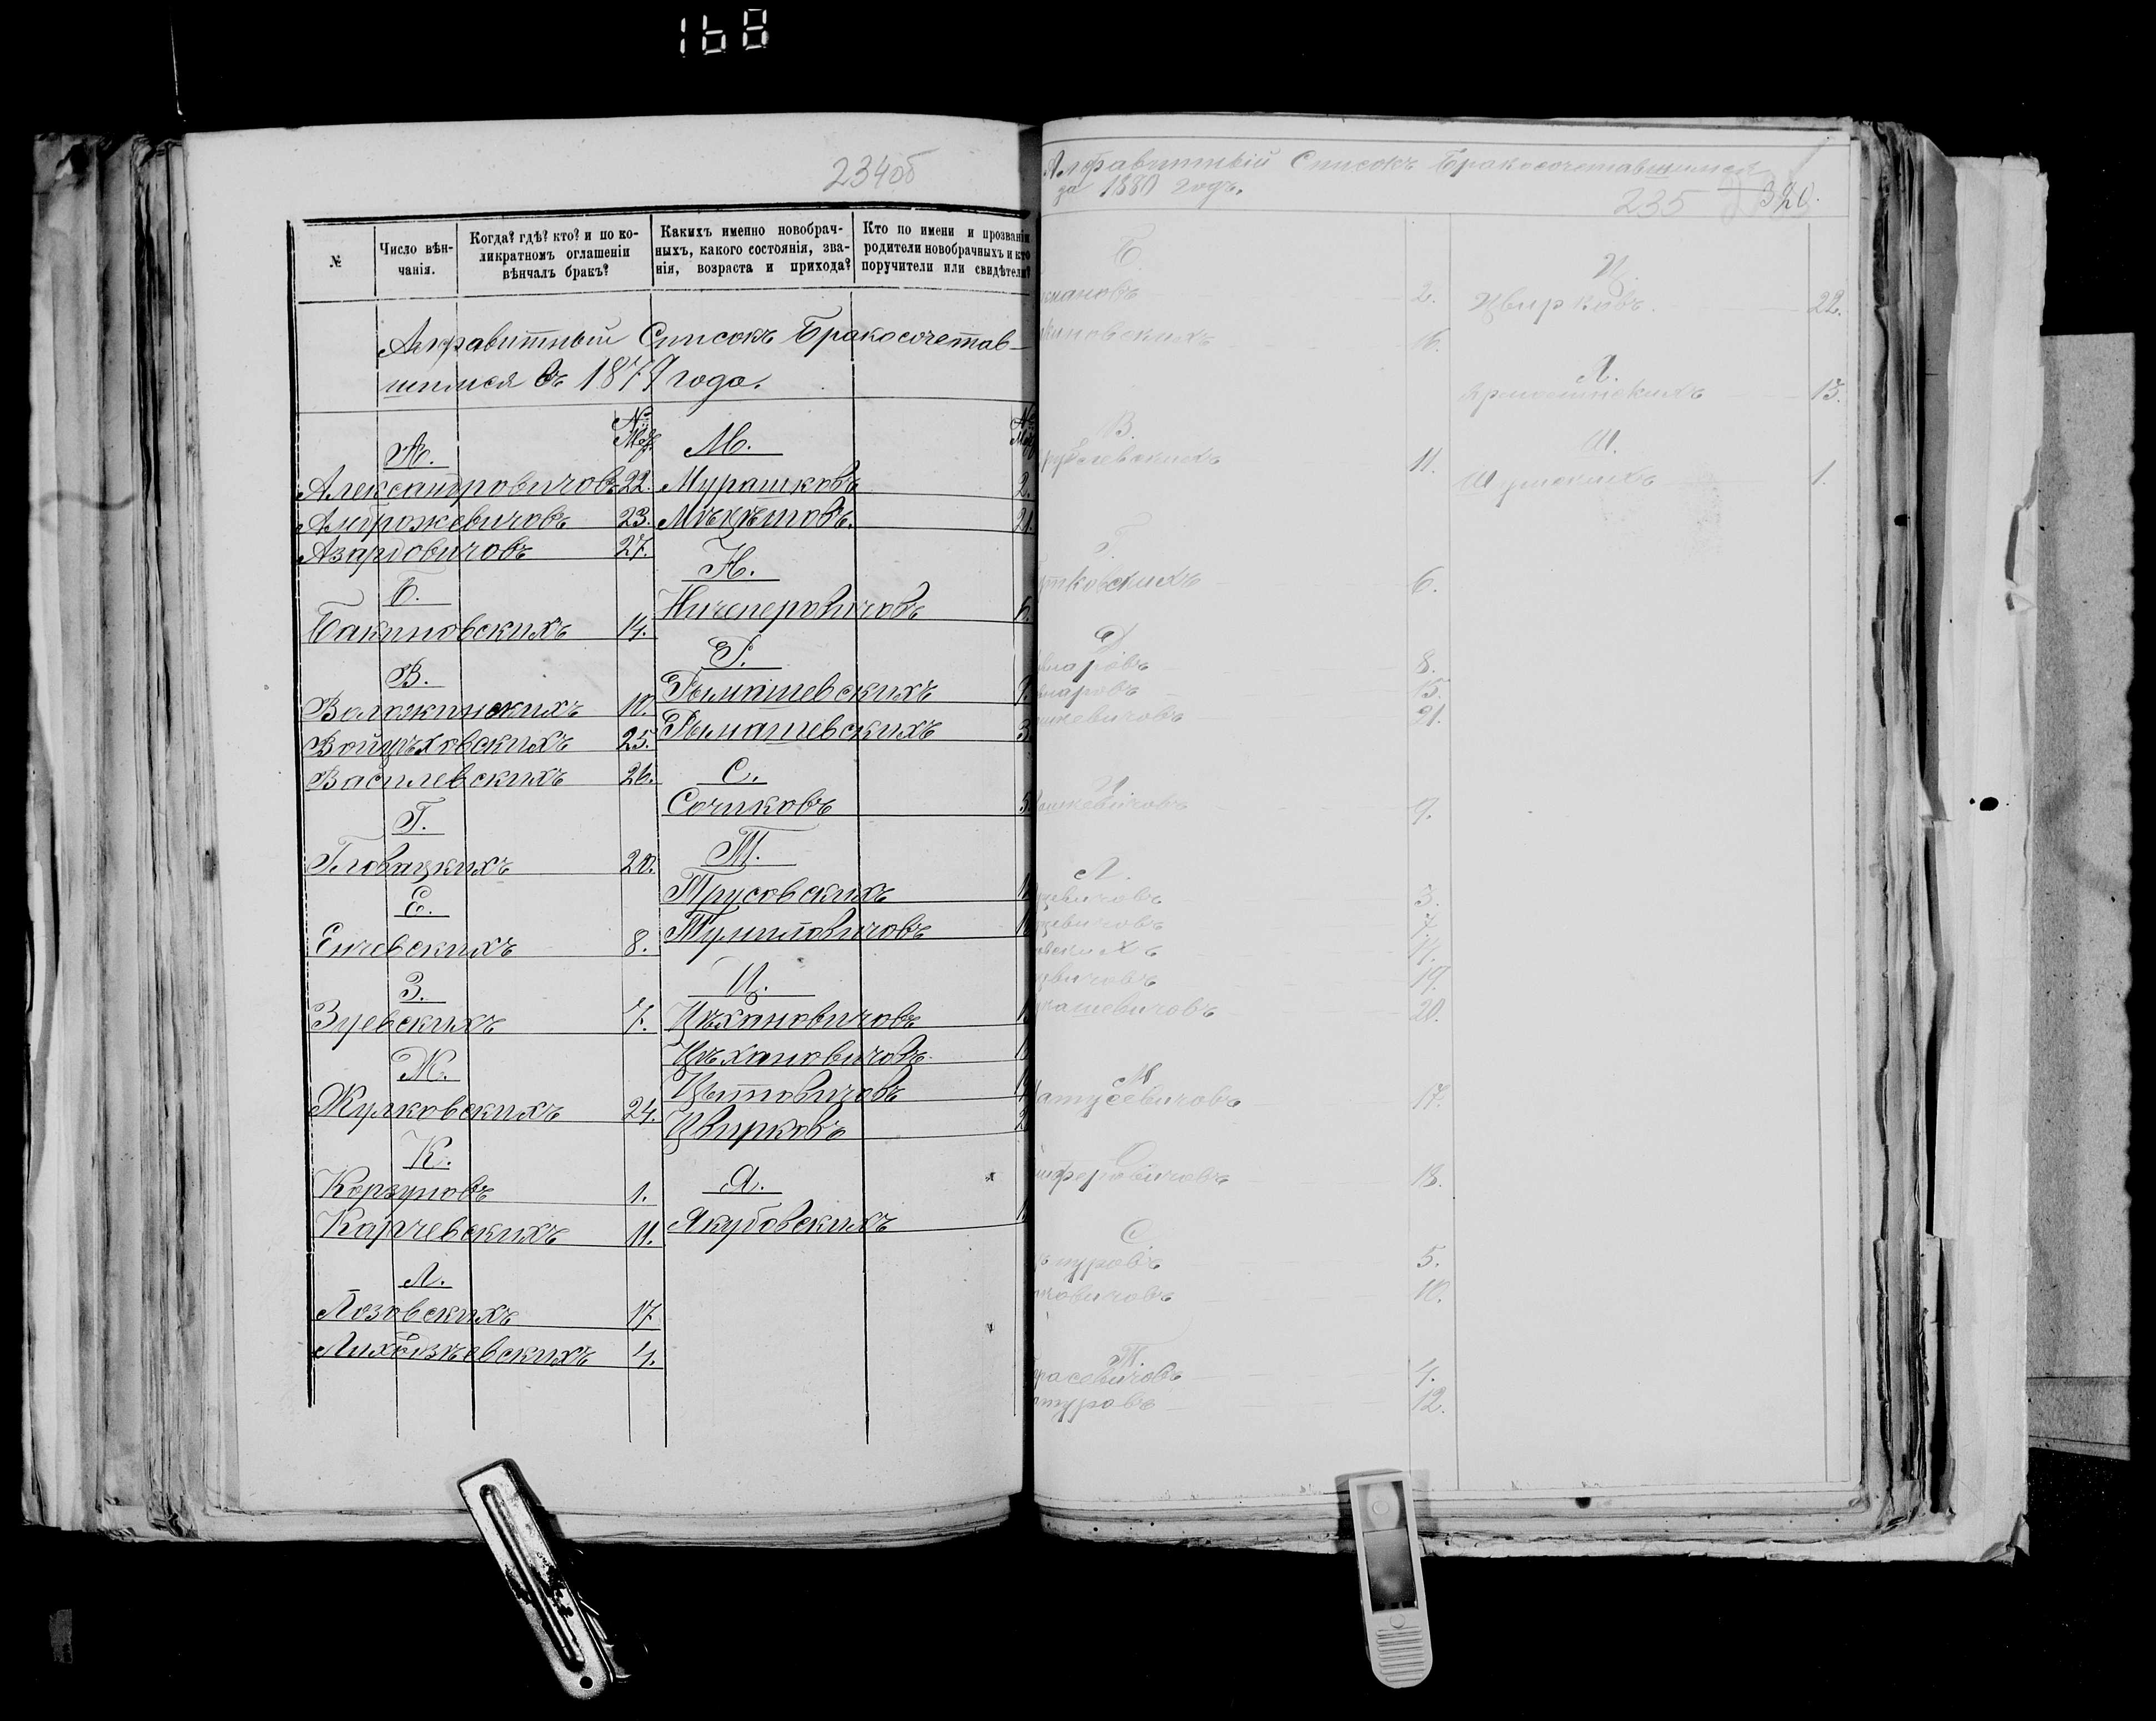 168
234об
№
Число вѣн-
чанія.
Когда? гдѣ? кто? и по ко-
ликратномъ оглашеніи
вѣнчалъ бракъ?
Какихъ именно новобрач-
ныхъ, какого состоянія, зва-
нія, возраста и прихода?
Кто по имени и прозванію
родители новобрачныхъ и кто
поручители или свидѣтели?
Алфавитный Списокъ Бракосочетав-
шимся въ 1879 года.
А.
Александровичовъ 22.
Амброжевичовъ 23.
Азардовичовъ 27.
Б.
Бакиновскихъ 14.
В.
Воложинскихъ 10.
Войцѣховскихъ 25.
Василевскихъ 26.
Г.
Гловацкихъ 20.
Е.
Енчевскихъ 8.
З.
Зуевскихъ 7.
Ж.
Жулковскихъ 24.
К.
Корзуновъ 1.
Карчевскихъ 11.
Л.
Лозовскихъ 17
4.
М.
Мурашковъ 2.
21.
Н.
Ничеперовичовъ 6.
Р.
Рымашевскихъ 9.
Рымашевскихъ 3
С.
Сочиковъ 5.
Т.
Трусовскихъ
Тумиловичовъ
Ц.
Цѣхановичовъ
Цѣхановичовъ
Цытовичовъ
Цвирковъ 2
Я.
Якубовскихъ
Алфавитный Списокъ Бракосочетавшимся
за 1880 годъ.
235 320.
Б.
2.
киновскихъ 16.
В.
рублевскихъ 11.
Г.
тковскихъ 6.
Д
8.
наровъ 15.
21.
ошкевичовъ 9.
Л.
цевичовъ 3.
цевичовъ 7.
вскихъ
евичовъ 19.
кашевичовъ 20.
М
атусевичовъ 17.
ифоровичовъ 18.
С
5.
новичовъ 10.
Т.
расевичовъ 4.
туровъ 12.
Ц.
Цвирковъ. 22.
Я.
13.
Ш.
Шумскихъ 1.